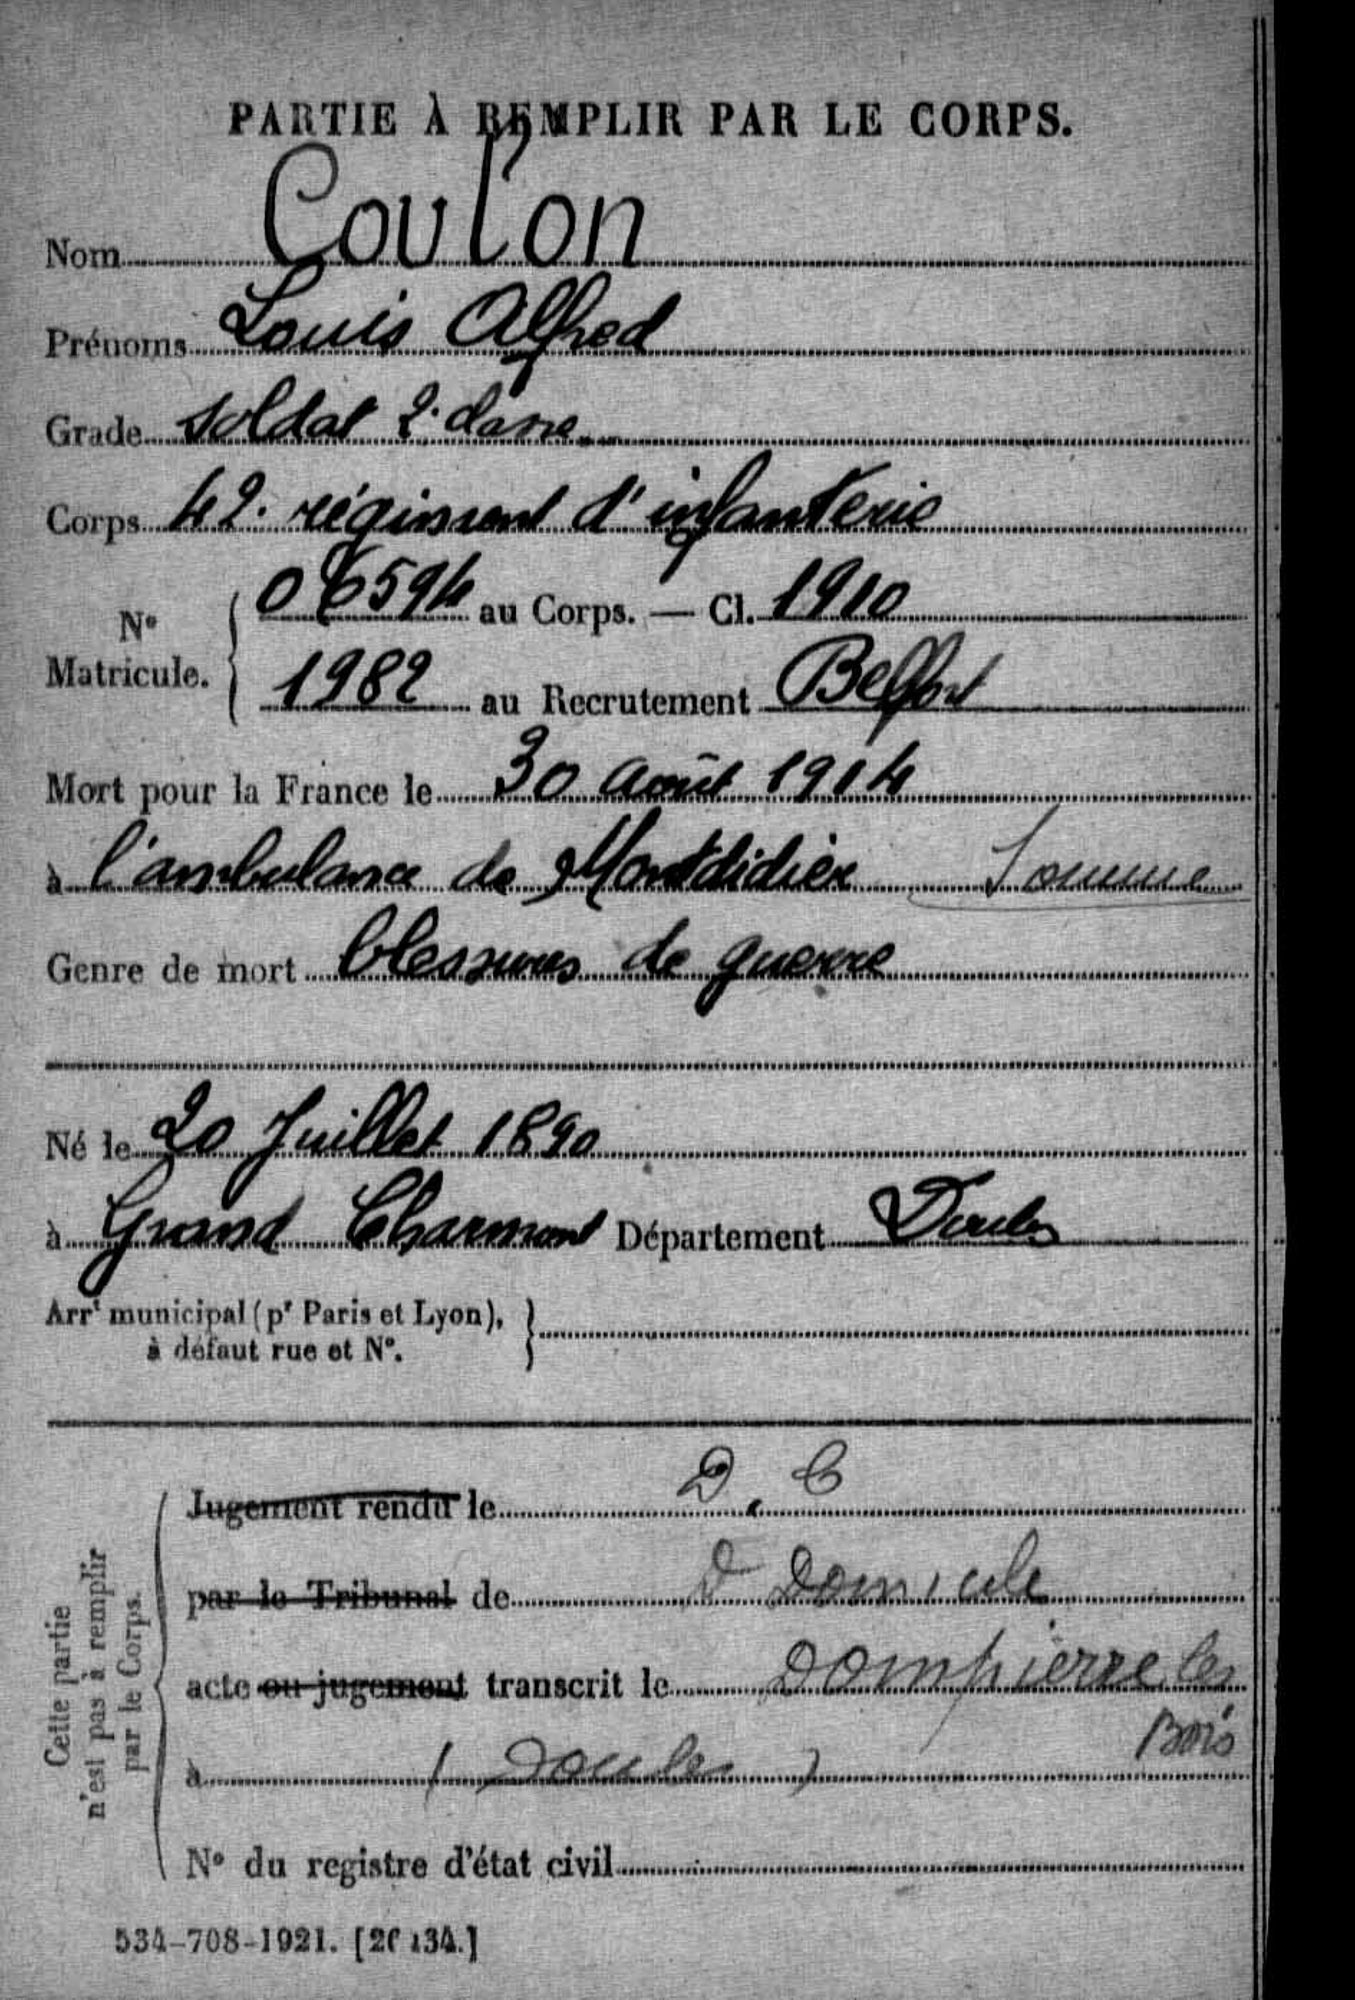 PARTIE À REMPLIR PAR LE CORPS.
Nom Coulon
Prénoms Louis Alfred
Grade soldat 2e classe
Corps 42e régiment d'infanterie
N° Matricule. 06594 au Corps. — Cl. 1910
1982 au Recrutement Belfort
Mort pour la France le 30 août 1914
à l'ambulance de Montdidier Somme
Genre de mort blessures de guerre
Né le 20 Juillet 1890
à Grand Charmont Département Doubs
Arrt municipal (pr Paris et Lyon),
à défaut rue et N°.
Cette partie
n'est pas à remplir
par le Corps.
Jugement rendu le D. C
par le Tribunal de D Domicile
acte ou jugement transcrit le Dompierre les
Bois
à (Doubs)
N° du registre d'état civil
534-708-1921. [26134.]